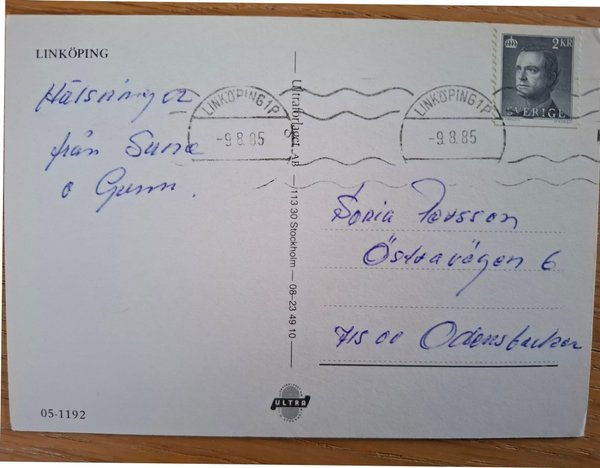 LINKÖPING
Hälsningar
från Sune
o Gunn.
Ultraförlaget AB — 113 30 Stockholm — 08-23 49 10
LINKÖPING 1P
-9.8.85
LINKÖPING 1P
-9.8.85
2 KR
SVERIGE
Sonia Persson
Östravägen 6
715 00 Odensbacken
ULTRA
05-1192